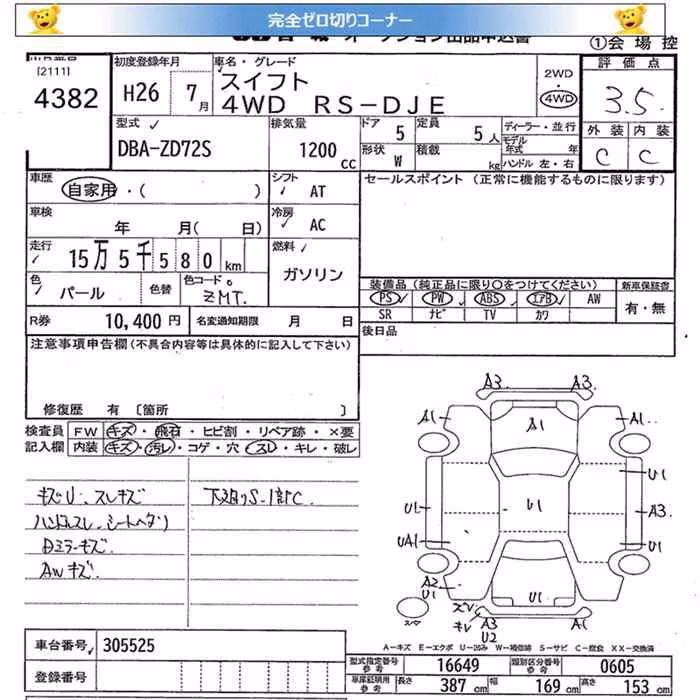 完全ゼロ切りコーナー
①会場控
[2111]
4382
初度登録年月
H26 7月
車名・グレード
スイフト
4WD RS-DJE
2WD
・
4WD
評価点
3.5
外装 内装
C C
型式
DBA-ZD72S
排気量
1200cc
ドア 5
定員 5人
形状 W
積載 kg
ディーラー・並行
モデル年式 年
ハンドル 左・右
車歴
自家用・( )
シフト
AT
セールスポイント (正常に機能するものに限ります)
車検
年 月( 日)
冷房
AC
走行
15万5千580km
燃料
ガソリン
色
パール
色替
色コードNo
ZMT.
装備品(純正品に限り○をつけてください)
PS PW ABS エアB AW
SR ナビ TV カワ
新車保証書
有・無
R券 10,400円
名変通知期限 月 日
後日品
注意事項申告欄(不具合内容等は具体的に記入して下さい)
修復歴 有 〔箇所 〕
検査員記入欄
FW キズ・飛石・ヒビ割・リペア跡・×要
内装 キズ・汚レ・コゲ・穴・スレ・キレ・破レ
キズU、スレキズ
ハンドルスレ、シートヘタリ
Dミラーキズ
AWキズ.
下廻りS-1部C
A3. A3.
A1 A1 A1
U1
U1 U1 A3
UA1 U1
A2
U1
U1
ズレ
キレ
A3
U2
A1
スペア
A-キズ E-エクボ U-凹み W-補修跡 S-サビ C-腐食 XX-交換済
車台番号 305525
登録番号
型式指定番号参考 16649
類別区分番号参考 0605
車庫証明用参考 長さ 387cm 幅 169cm 高さ 153cm